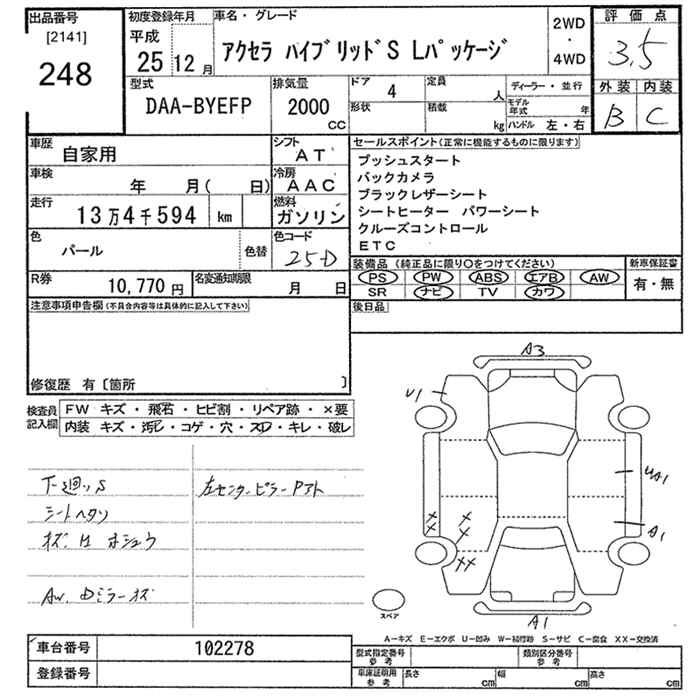 出品番号
[2141]
248
初度登録年月
平成
25 12 月
車名・グレード
アクセラ ハイブリッドS Lパッケージ
2WD
・
4WD
評価点
3.5
外装 内装
B C
型式
DAA-BYEFP
排気量
2000
CC
ドア 4
形状
定員 人
積載 kg
ディーラー・並行
モデル年式 年
ハンドル 左・右
車歴
自家用
シフト
AT
車検
年 月( 日)
冷房
AAC
走行
13万4千594 km
燃料
ガソリン
色
パール
色替
色コード
25-D
R券
10,770 円
名変通知期限
月 日
セールスポイント(正常に機能するものに限ります)
プッシュスタート
バックカメラ
ブラックレザーシート
シートヒーター パワーシート
クルーズコントロール
ETC
装備品(純正品に限り○をつけてください)
PS PW ABS エアB AW
SR ナビ TV カワ
新車保証書
有・無
後日品
注意事項申告欄(不具合内容等は具体的に記入して下さい)
修復歴 有〔箇所 〕
検査員記入欄
FW キズ・飛石・ヒビ割・リペア跡・×要
内装 キズ・汚レ・コゲ・穴・スレ・キレ・破レ
下廻りS
シートヘタリ
左センターピラーPアト
AW. Dミラーキズ
A3
U1
UA1
A1
A1
××
××
スペア
A-キズ E-エクボ U-凹み W-補修跡 S-サビ C-腐食 XX-交換済
車台番号
102278
登録番号
型式指定番号
参考
類別区分番号
参考
車庫証明用
参考
長さ cm
幅 cm
高さ cm